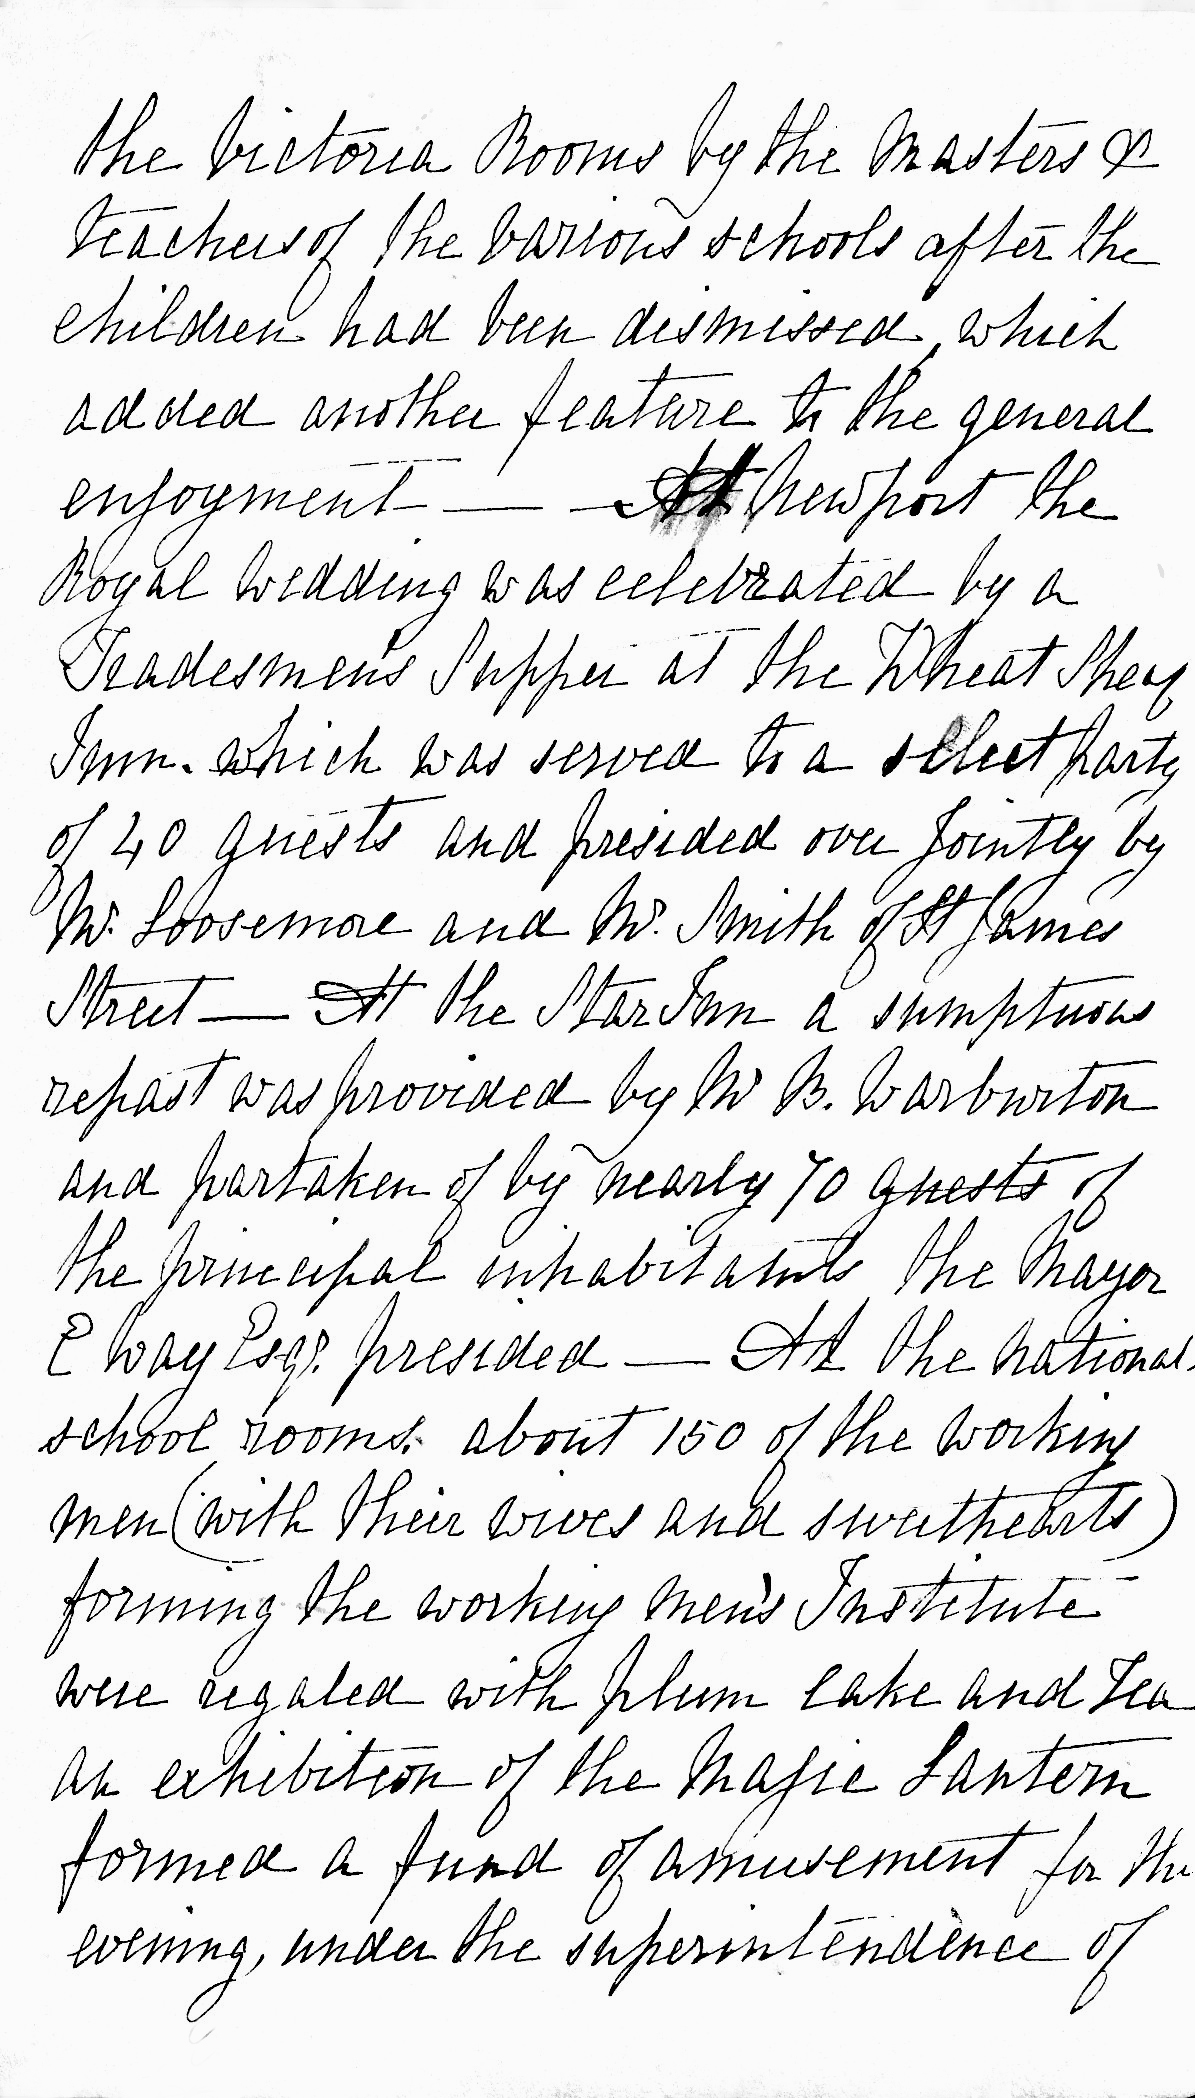 the Victoria Rooms by the Masters &
teachers of the various schools after the
children had been dismissed, which
added another feature to the general
enjoyment — — At Newport the
Royal Wedding was celebrated by a
Tradesmen's Supper at the Wheat Sheaf
Inn. which was served to a select party
of 40 guests and presided over jointly by
Mr. Loosemore and Mr. Smith of St James
Street — At the Star Inn a sumptuous
repast was provided by Mr B. Warburton
and partaken of by nearly 70 guests of
the principal inhabitants the Mayor
E Way Esqr. presided — At the national
school rooms. about 150 of the working
men (with their wives and sweethearts)
forming the working men's Institute
were regaled with plum cake and Tea
an exhibition of the Magic Lantern
formed a fund of amusement for the
evening, under the superintendence of